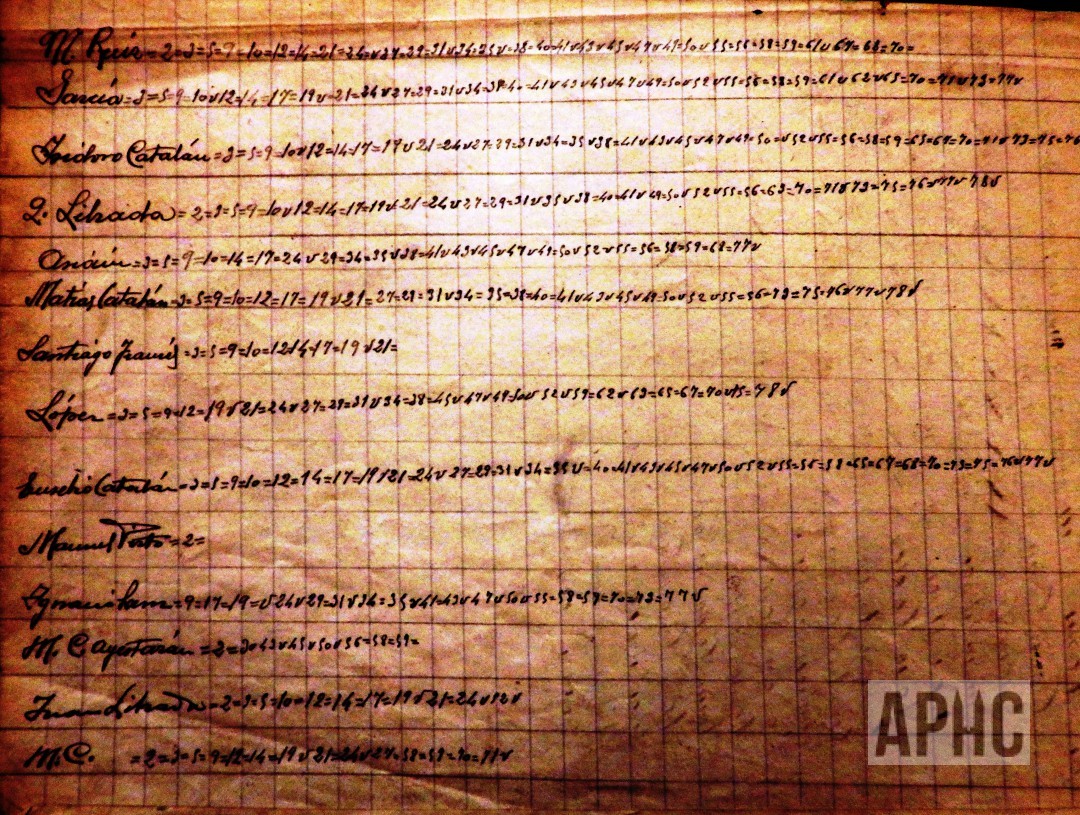 M. Ruiz = 2=3=5=9=10=12=14=21=24v27=29=31v34=35v38=40=41v43v45v47v49=50v55=56=58=59=61v67=68=70=
García=3=5=9=10v12=14=17=19v21=24v27=29=31v34=38=40=41v43v45v47v49=50v52v55=56=58=59=61v62v65=70=71v73=77v
Isidoro Catalán=3=5=9=10v12=14=17=19v21=24v27=29=31v34=35v38=41v43v45v47v49=50=v52v55=56=58=59=65=67=70=71v73=75=76
Q. Librada = 2=3=5=9=10v12=14=17=19v21=24v27=29=31v35v38=40=41v49=50v52v55=56=63=70=71v73=75=76v77v78v
=3=5=9=10=14=17=24v29=34=35v38=41v43v45v47v49=50v52v55=56=58=59=68=77v
Matías Catalán=3=5=9=10=12=17=19v21=27=29=31v34=35=38=40=41v43v45v49=50v52v55=56=73=75=76v77v78v
Santiago Francés=3=5=9=10=12=14=17=19v21=
López=3=5=9=12=19v21=24v27=29=31v34=38=45v47v49=50v52v59=62v63=65=67=70v75=78v
Eusebio Catalán=3=5=9=10=12=14=17=19v21=24v27=29=31v34=35v=40=41v43v45v47v50v52v55=56=58=65=67=68=70=73=75=76v77v
Manuel =2=
=9=17=19=v24v29=31v34=35v41=43v47v50v55=58=59=70=73=77v
M. C. =2=3=43v45v50v56=58=59=
Juan Librada=2=3=5=10=12=14=17=19v21=24v52v
M.C. =2=3=5=9=12=14=19v21=24v27=58=59=70=71v
APHC